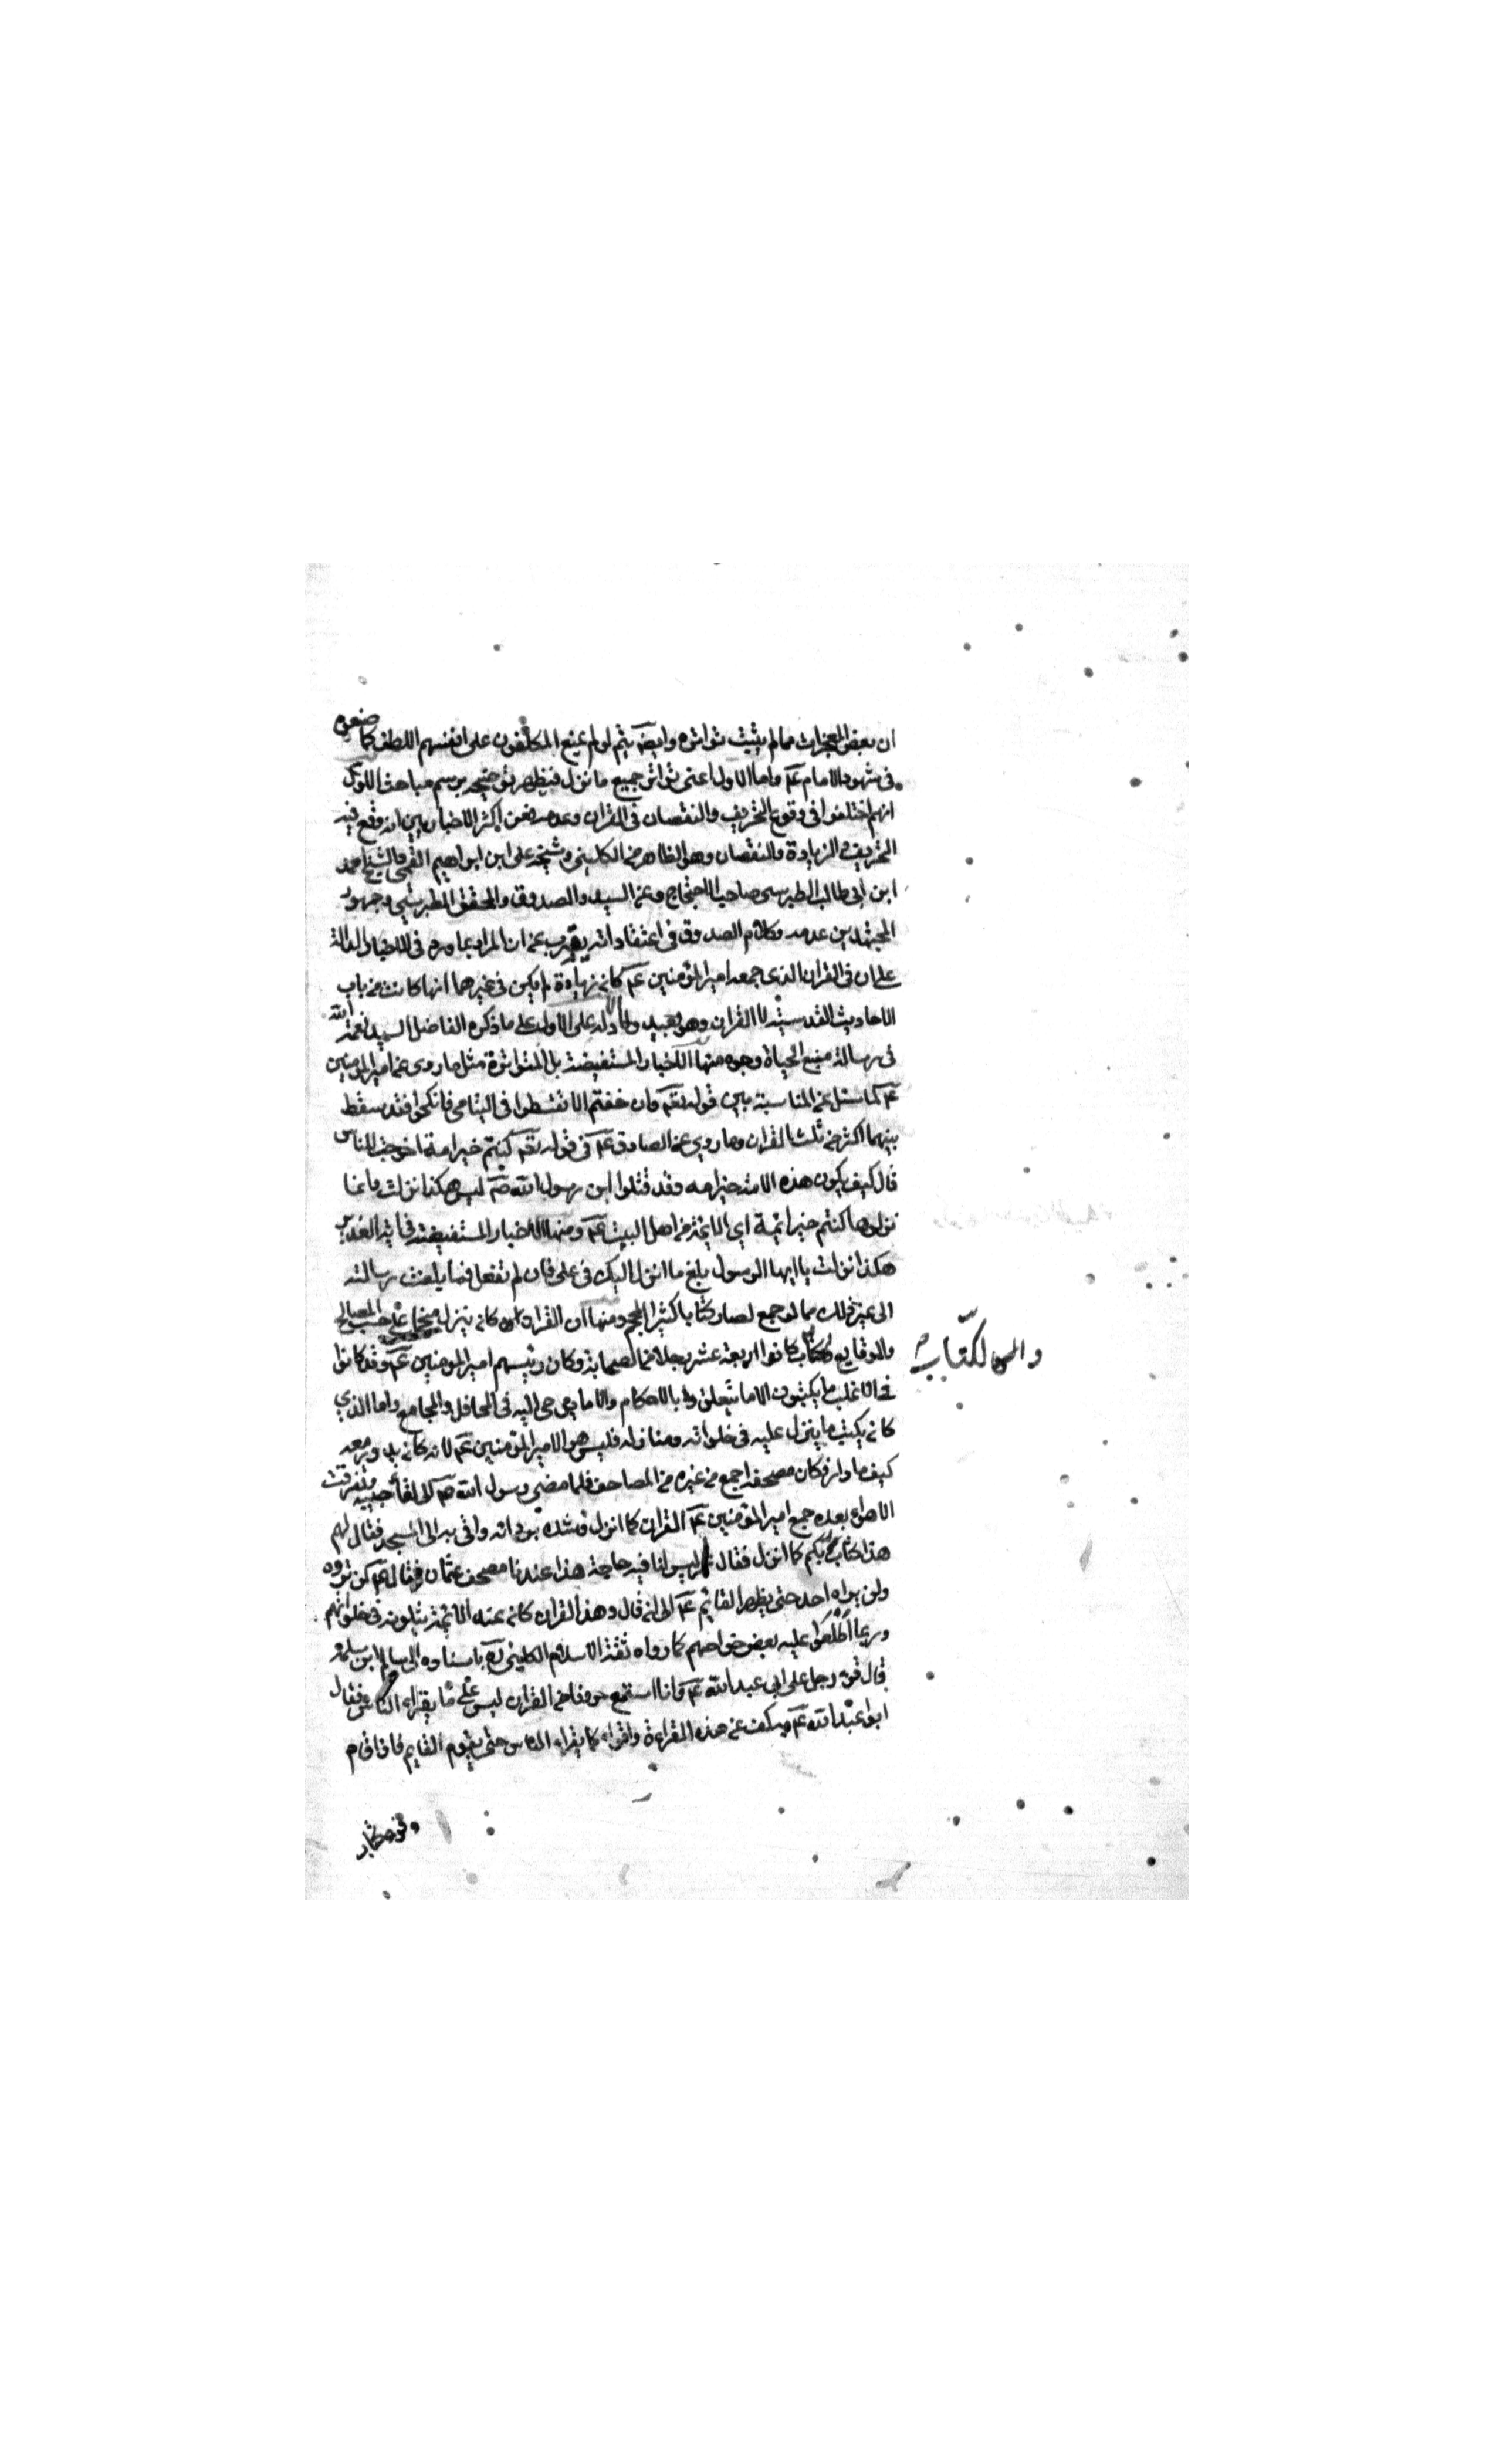 ان بعض المعجزات مما لم يثبت تواتره وايضا يتم لو لم يمنع المكلفون على انفسهم اللطف كما صنعوه
في شهود الامام عم واما الاول اعني تواتر جميع ما نزل فيظهر توضيحه برسم مباحث الاول
انهم اختلفوا في وقوع التحريف والنقصان في القران وعدمه فعن اكثر الاخباريين انه وقع فيه
التحريف والزيادة والنقصان وهو الظاهر من الكليني وشيخه على ابن ابراهيم القمي والشيخ احمد
ابن ابي طالب الطبرسي صاحب الاحتجاج وعن السيد والصدوق والمحقق الطبرسي وجمهور
المجتهدين عدمه وكلام الصدوق في اعتقاداته يعرب عن ان المراد بما ورد في الاخبار الدالة
على ان في القران الذى جمعه امير المؤمنين عم كانه زيادة لم يكن في غيرهما انها كانت من باب
الاحاديث القدسية لا القران وهو بعيد والادلة على الاول على ما ذكره الفاضل السيد نعمة الله
في رسالة منبع الحياة وجوه منها الاخبار المستفيضة بل المتواترة مثل ما روى عن امير المؤمنين
عم لما سئل عن المناسبة بين قوله تعم وان خفتم الا تقسطوا في اليتامى فانكحوا فقد سقط
بينهما اكثر من ثلث القران وما روي عن الصادق عم في قوله تعم كنتم خير امة اخرجت للناس
قال كيف يكون هذه الامة خير امه وقد قتلوا ابن رسول الله صم ليس هكذا نزلت وانما
نزولها كنتم خير ائمة اي الائمة من اهل البيت عم ومنها الاخبار المستفيضة في اية الغدير
هكذا نزلت يا ايها الرسول بلغ ما انزل اليك في علي فان لم تفعل فما بلغت رسالته
الى غير ذلك مما لو جمع لصار كتابا كثير الحجم ومنها ان القران كان ينزل منجما على حسب المصالح
والوقايع وكتاب كانوا اربعة عشر رجلا من الصحابة وكان رئيسهم امير المومنين عم وقد كانوا
في الاغلب ما يكتبون الا ما يتعلق بالاحكام والا ما يوحى اليه في المحافل والمجامع واما الذي
كان يكتب ما ينزل عليه في خلواته ومنازله فليس هو الا امير المؤمنين عم لانه كان يدور معه
كيف ما دار فكان مصحفه اجمع من غيره من المصاحف فلما مضى رسول الله صم الى لقاء حبيبه وتفرقت
الاهواء بعده جمع امير المؤمنين عم القران كما انزل وشده بردائه واتى به الى المسجد فقال لهم
هذا كتاب ربكم كما انزل فقال ليس لنا فيه حاجة هذا عندنا مصحف عثمان فقال عم لن تروه
ولن يراه احد حتى يظهر القائم عم الى ان قال وهذا القران كان عند الائمة يتلونه في خلواتهم
وربما اطلعوا عليه بعض خواصهم كما رواه ثقة الاسلام الكليني ره باسناده الى سالم ابن سلمه
قال قرء رجل على ابي عبد الله عم وانا استمع حروفا من القران ليس على ما يقراه الناس فقال
ابو عبد الله عم مه كف عن هذه القراءة واقراء كما يقراء الناس حتى يقوم القايم فاذا قام